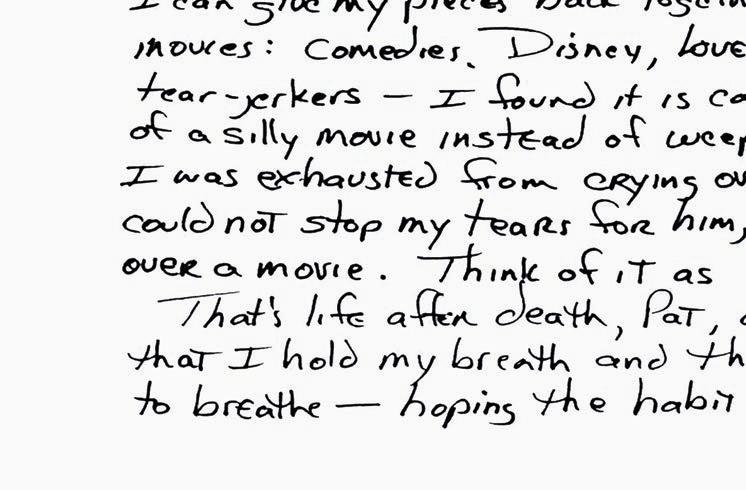 I can give my pieces back toge
movies: Comedies, Disney, love
tear-jerkers — I found it is ca
of a silly movie instead of weep
I was exhausted from crying ov
could not stop my tears for him,
over a movie. Think of it as
That's life after death, Pat,
that I hold my breath and th
to breathe — hoping the habit